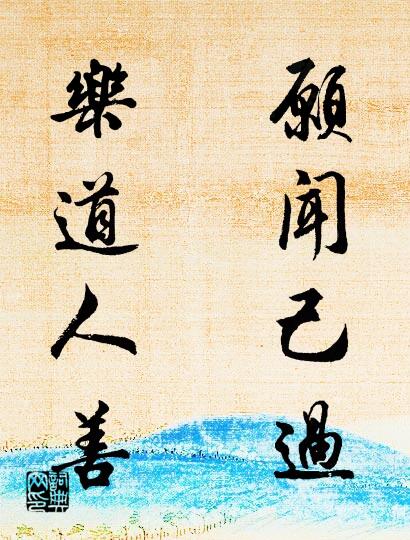 願聞己過
樂道人善